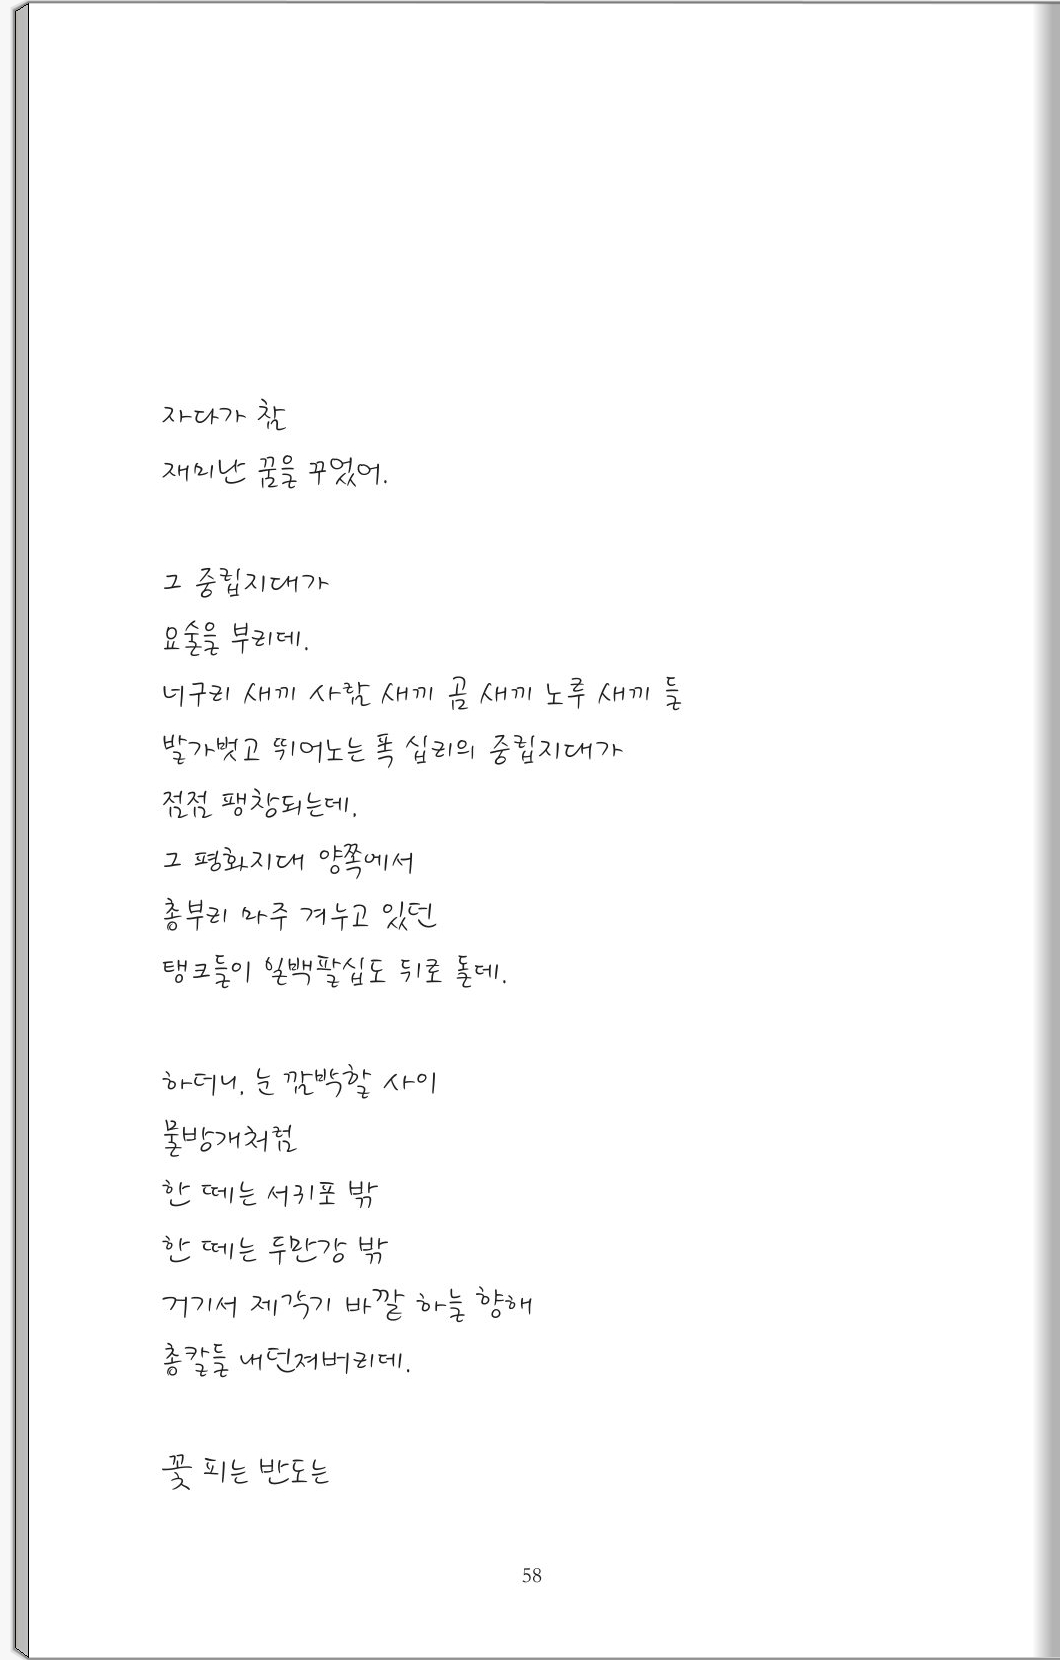 자다가 참
재미난 꿈을 꾸었어.
그 중립지대가
요술을 부리데.
너구리 새끼 사람 새끼 곰 새끼 노루 새끼 들
발가벗고 뛰어노는 폭 십리의 중립지대가
점점 팽창되는데,
그 평화지대 양쪽에서
총부리 마주 겨누고 있던
탱크들이 일백팔십도 뒤로 돌데.
하더니, 눈 깜박할 사이
물방개처럼
한 떼는 서귀포 밖
한 떼는 두만강 밖
거기서 제각기 바깥 하늘 향해
총칼들 내던져버리데.
꽃 피는 반도는
58